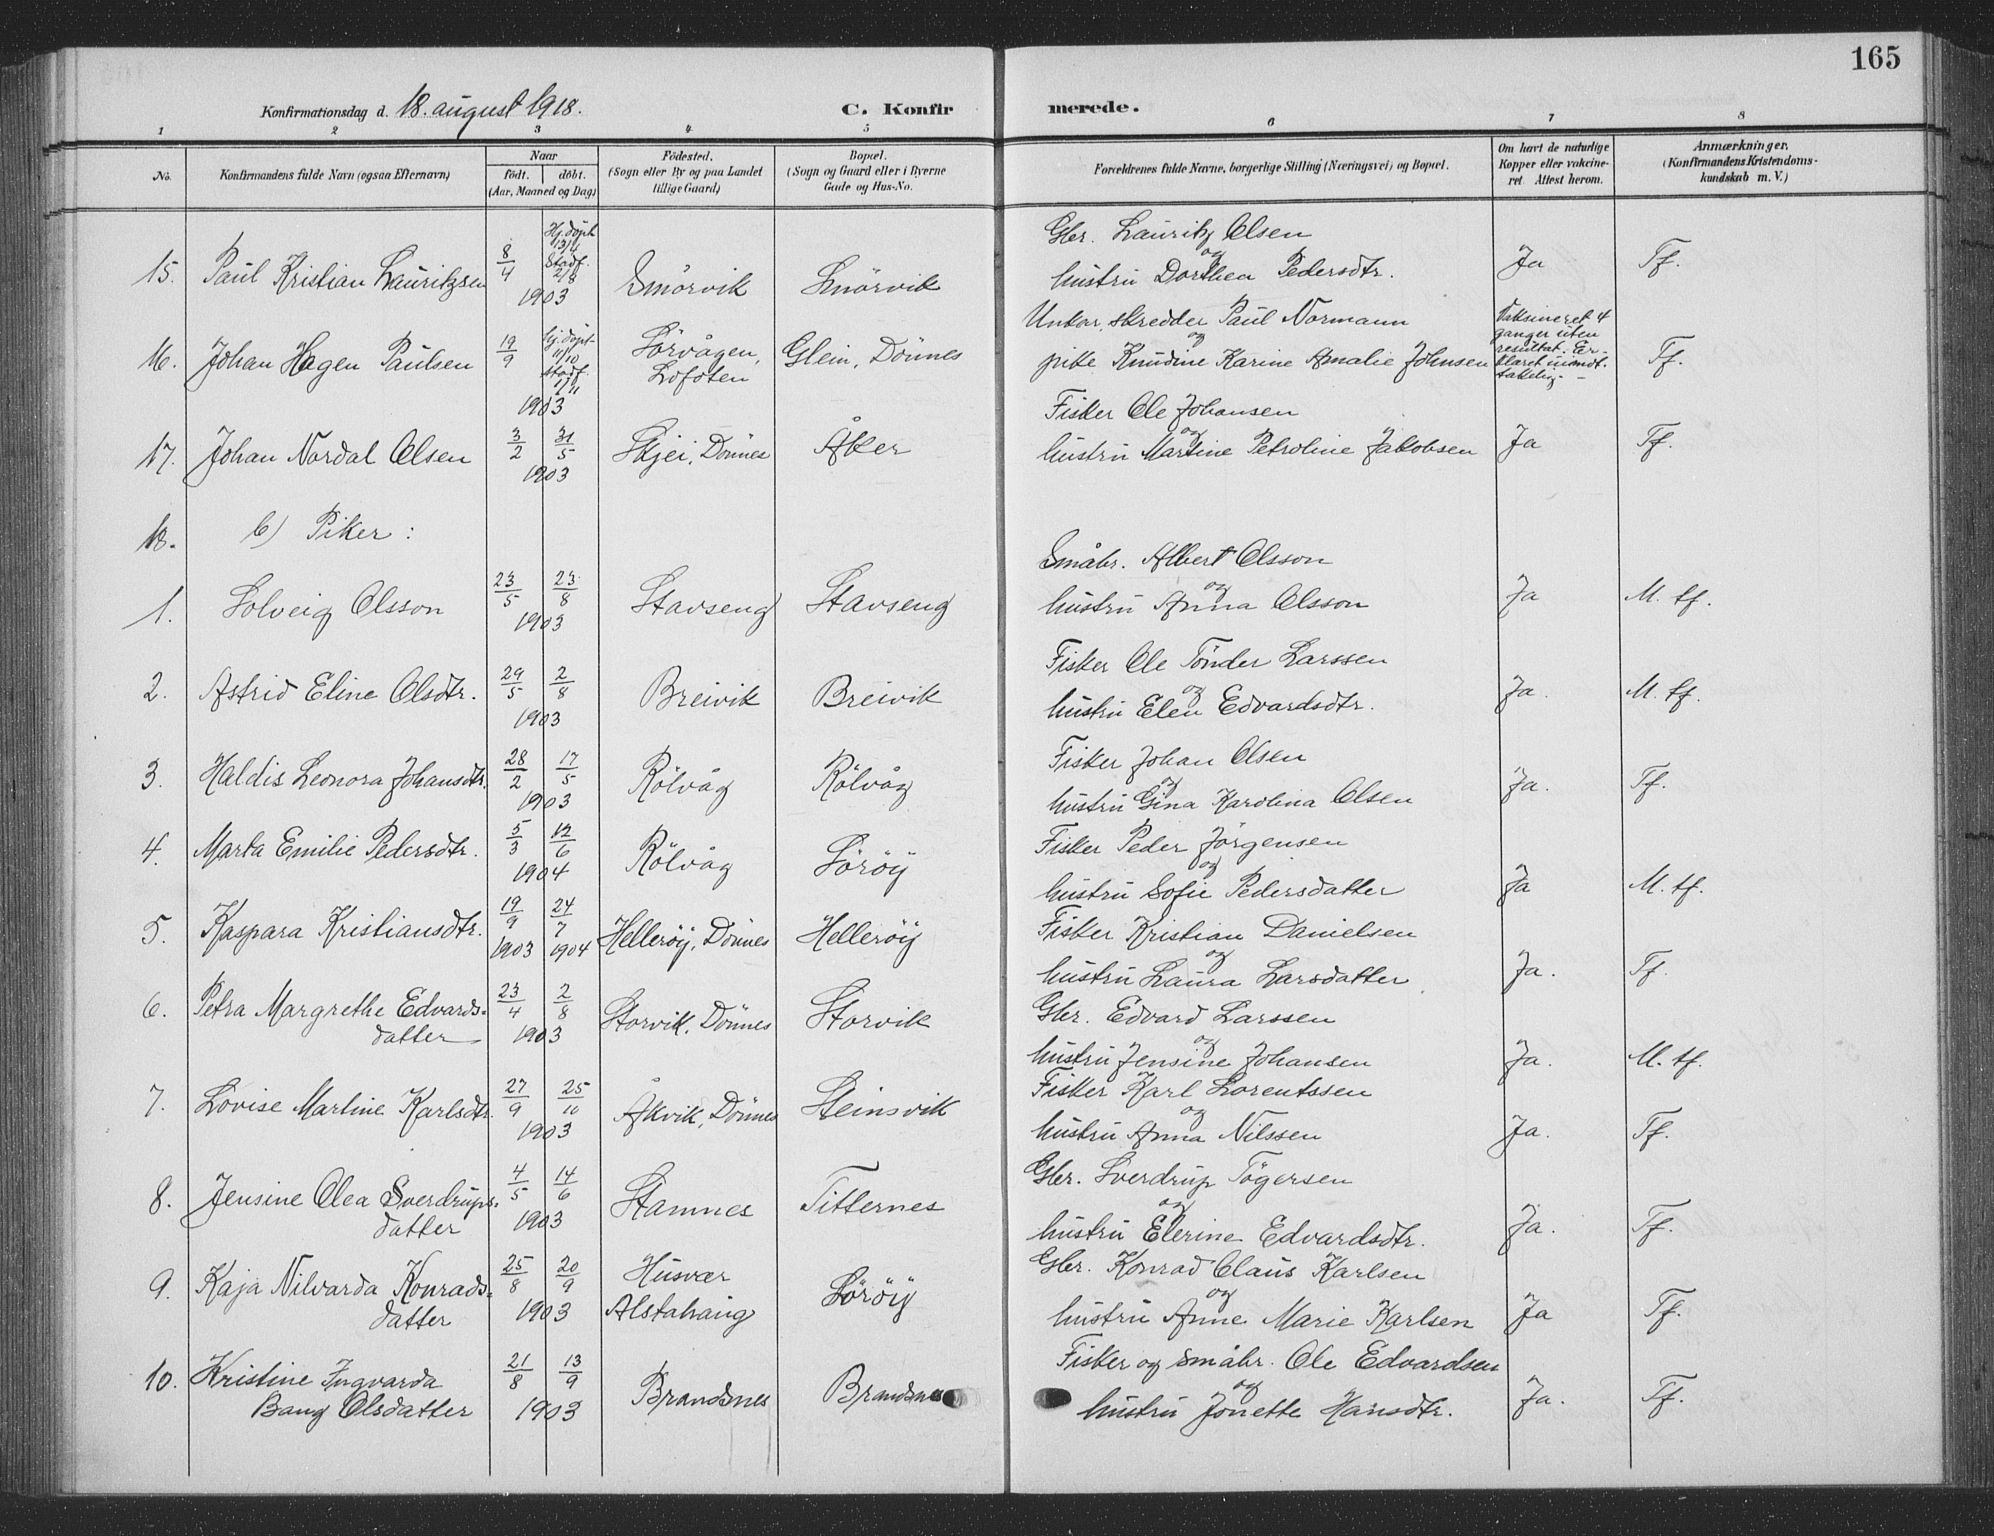 165
Konfirmationsdag d. 18. august 1918.
C. Konfirmerede.
1 2 3 4 5 6 7 8
No.
Konfirmandens fulde Navn (ogsaa Efternavn)
Naar
födt. döbt.
(Aar, Maaned og Dag)
Födested.
(Sogn eller By og paa Landet
tillige Gaard)
Bopæl.
(Sogn og Gaard eller i Byerne
Gade og Hus-No.
Forældrenes fulde Navne, borgerlige Stilling (Næringsvei) og Bopæl.
Om havt de naturlige
Kopper eller vakcine-
ret. Attest herom.
Anmærkninger.
(Konfirmandens Kristendoms-
kundskab m. V.)
15. Paul Kristian Lauritzsen 8/4 Hj.döpt 13/4 Stadf. 2/8 1903 Smörvik Smörvik
Gbr. Lauritz Olsen
og
hustru Dorthea Pedersdtr. Ja Tf.
16. Johan Hagen Paulsen 19/9 Hj.döpt 11/10 Stadf. 1/11 1903 Sörvågen, Lofoten Glein, Dönnes
Unkar, skredder Paul Normann
og
pike Knudine Karine Amalie Johnsen
Vaksineret 4
ganger uten
resultat. Er-
klaret uimot-
takelig. Tf.
17. Johan Nordal Olsen 3/2 31/5 1903 Skjei, Dönnes Åker
Fisker Ole Johansen
og
hustru Martine Petroline Jakobsen Ja Tf.
18. b) Piker:
1. Solveig Olsson 23/5 23/8 1903 Stavseng Stavseng
Småbr. Albert Olsson
og
hustru Anna Olsson Ja M. tf.
2. Astrid Eline Olsdtr. 29/5 2/8 1903 Breivik Breivik
Fisker Ole Tönder Larssen
og
hustru Elen Edvardsdtr. Ja. M. tf.
3. Haldis Leonora Johansdtr. 28/2 17/5 1903 Rölvåg Rölvåg
Fisker Johan Olsen
og
hustru Gina Karolina Olsen Ja. Tf.
4. Marta Emilie Pedersdtr. 5/3 12/6 1904 Rölvåg Söröy
Fisker Peder Jörgensen
og
hustru Sofie Pedersdatter Ja M. tf.
5. Kaspara Kristiansdtr. 19/9 1903 24/7 1904 Helleröy, Dönnes Helleröy
Fisker Kristian Danielsen
og
hustru Laura Larsdatter Ja. Tf.
6. Petra Margrethe Edvards-
datter 23/4 2/8 1903 Storvik, Dönnes Storvik
Gbr. Edvard Larssen
og
hustru Jensine Johansen Ja. M. tf.
7. Lovise Martine Karlsdtr. 27/9 25/10 1903 Åkvik, Dönnes Steinsvik
Fisker Karl Lorentssen
og
hustru Anna Nilssen Ja. Tf.
8. Jensine Olea Sverdrups-
datter 4/5 14/6 1903 Stamnes Titternes
Gbr. Sverdrup Tögersen
og
hustru Elerine Edvardsdtr. Ja. Tf.
9. Kaja Nilvarda Konrads-
datter 25/8 20/9 1903 Husvær
Alstahaug Söröy
Gbr. Konrad Claus Karlsen
og
hustru Anne Marie Karlsen Ja Tf.
10. Kristine Ingvarda
Bang Olsdatter 21/8 13/9 1903 Brandsnes Brandsnes
Fisker og småbr. Ole Edvardsen
og
hustru Jonette Hansdtr. Ja. Tf.